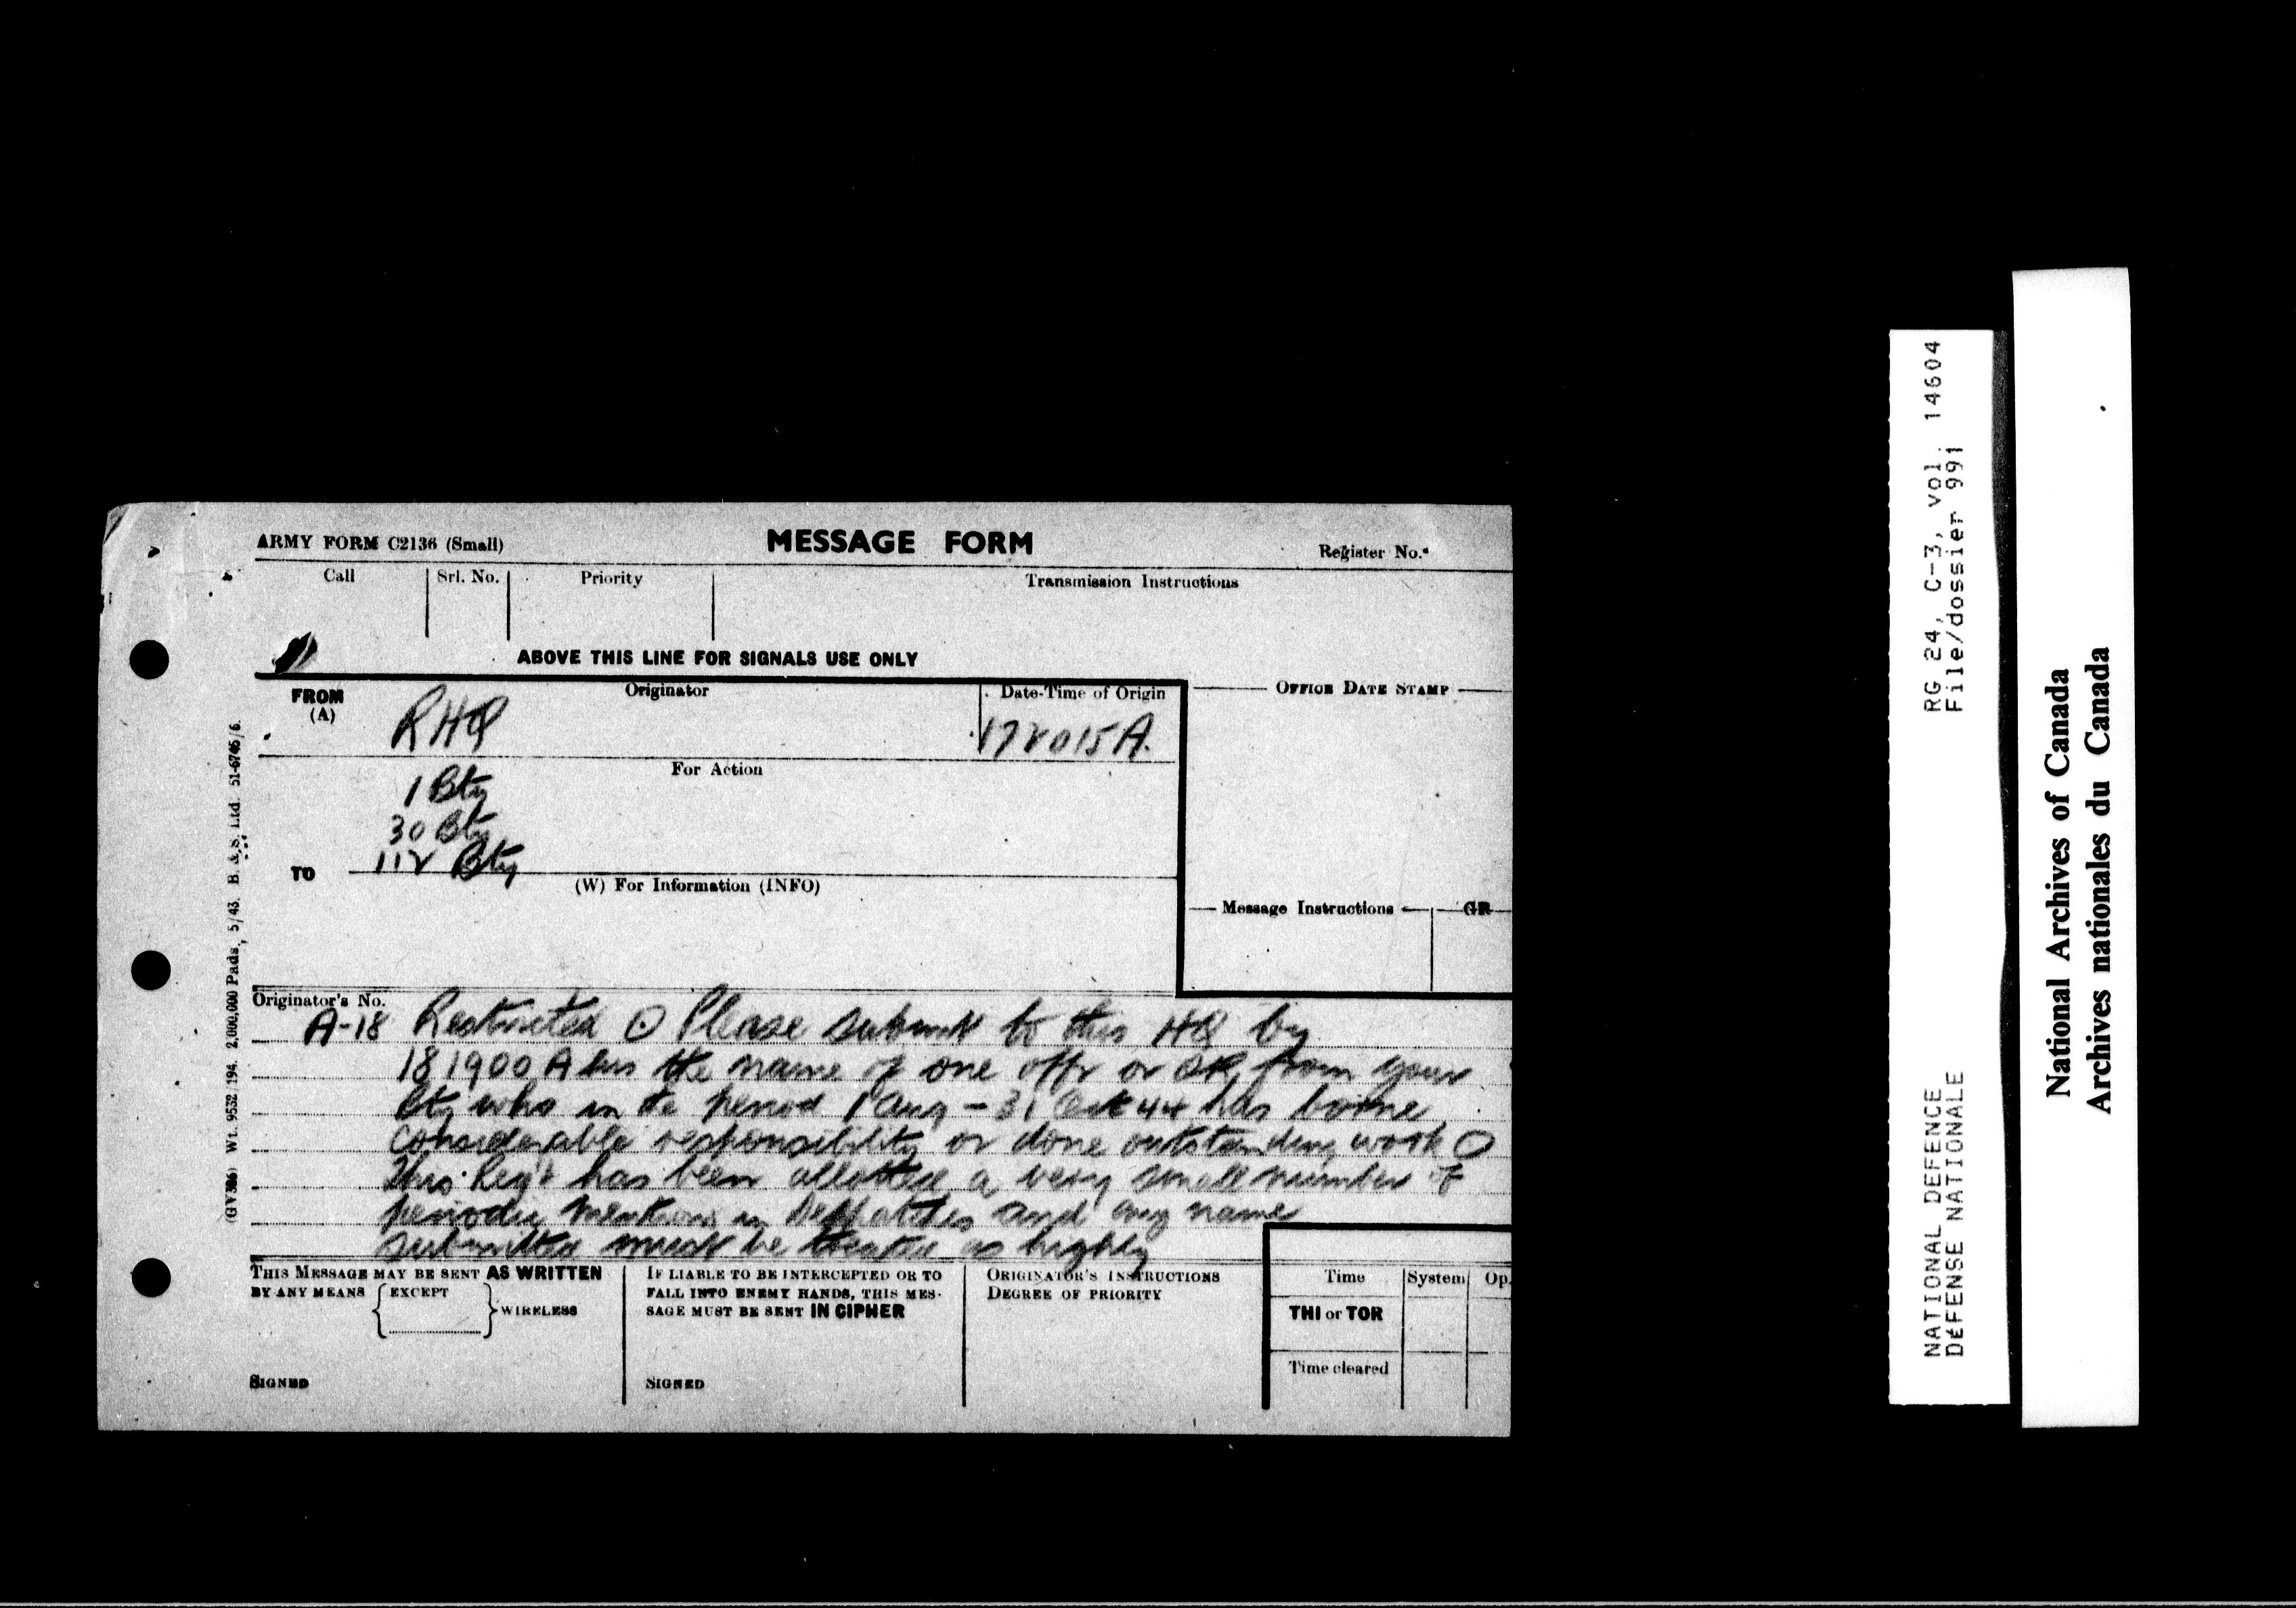 ARMY FORM C2136 (Small)
MESSAGE FORM
Register No.
Call
Srl. No.
Priority
Transmission Instructions
ABOVE THIS LINE FOR SIGNALS USE ONLY
FROM
(A)
Originator
RHQ
Date-Time of Origin
172015A.
OFFICE DATE STAMP
For Action
1 Bty
30 Bty
112 Bty
TO
(W) For Information (INFO)
Message Instructions
GR
Originator's No.
A-18 Restricted ⊙ Please submit to this HQ by
181900A hrs the name of one offr or OR from your
bty who in the period 1 Aug - 31 Oct 44 has borne
considerable responsibility or done outstanding work O
This Regt has been allotted a very small number of
periodic Mentions in Despatches and any name
submitted must be treated as highly
THIS MESSAGE MAY BE SENT AS WRITTEN
BY ANY MEANS
EXCEPT
WIRELESS
SIGNED
IF LIABLE TO BE INTERCEPTED OR TO
FALL INTO ENEMY HANDS, THIS MES-
SAGE MUST BE SENT IN CIPHER
SIGNED
ORIGINATOR'S INSTRUCTIONS
DEGREE OF PRIORITY
Time
System
Op.
THI or TOR
Time cleared
Wt. 9532/194. 2,000,000 Pads, 5/43. B. & S. Ltd. 51-6745/6.
RG 24, C-3, vol. 14604
File/dossier 991
NATIONAL DEFENCE
DÉFENSE NATIONALE
National Archives of Canada
Archives nationales du Canada